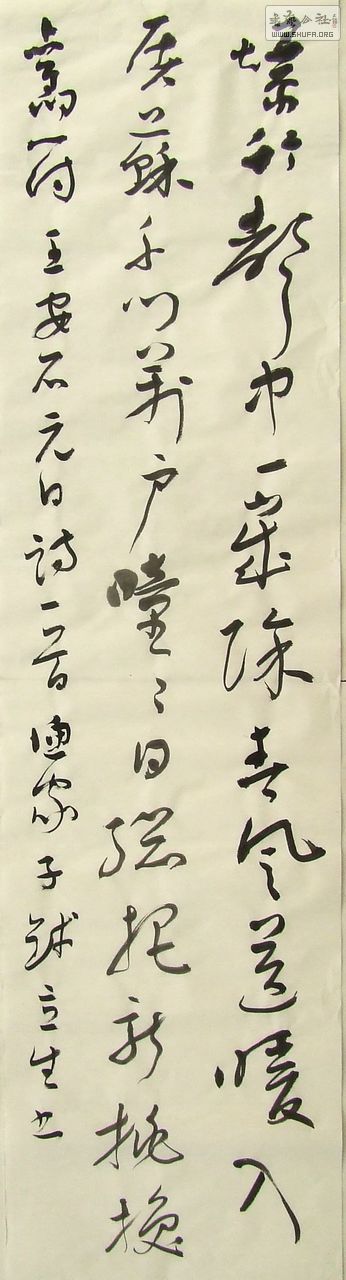 爆竹聲中一歲除春風送暖入
屠蘇千門萬戶曈々日總把新桃換
舊符 王安石元日詩一首 子 立生书
书法公社
WWW.SHUFA.ORG